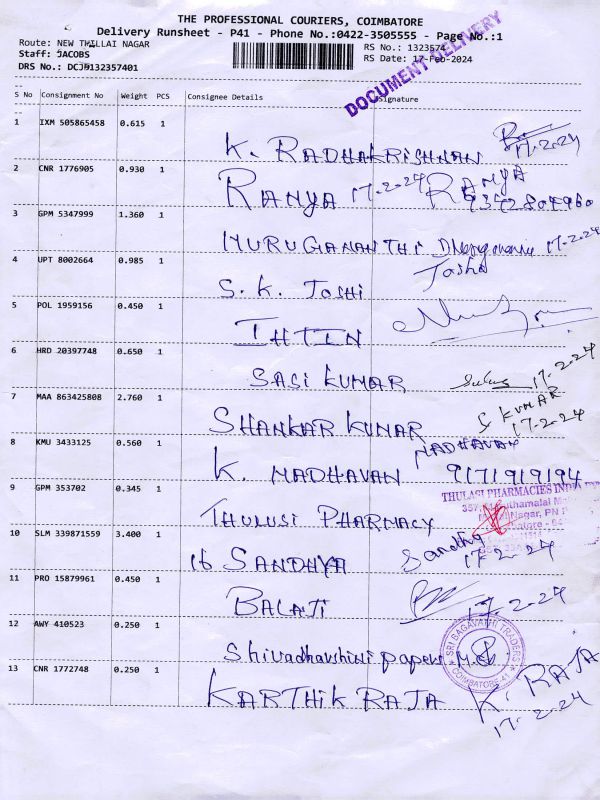 THE PROFESSIONAL COURIERS, COIMBATORE
Delivery Runsheet - P41 - Phone No.:0422-3505555 - Page No.:1
Route: NEW THILLAI NAGAR
RS No.: 1323574
Staff: JACOBS
RS Date: 17-Feb-2024
DRS No.: DCJB132357401
DOCUMENT DELIVERY
S No Consignment No Weight PCS Consignee Details Signature
1 IXM 505865458 0.615 1
K. RADHAKRISHNAN 17-2-24
2 CNR 1776905 0.930 1
RANYA 17-2-24 RANYA
3 GPM 5347999 1.360 1
MURUGIANANTHI 17-2-24
4 UPT 8002664 0.985 1
S.K. JOSHI Joshi
5 POL 1959156 0.450 1
6 HRD 20397748 0.650 1
SASI KUMAR 17-2-24
7 MAA 863425808 2.760 1
SHANKAR KUMAR S KUMAR 17-2-24
8 KMU 3433125 0.560 1
K. MADHAVAN MADHAVAN 9171919194
9 GPM 353702 0.345 1
THULUSI PHARMACY
THULASI PHARMACIES INDIA
10 SLM 339871559 3.400 1
16 SANDHYA Sandhya 17-2-24
11 PRO 15879961 0.450 1
BALAJI 17-2-24
12 AWY 410523 0.250 1
Shivadharshini papers
SRI BAGAVATHI TRADERS
COIMBATORE-41
13 CNR 1772748 0.250 1
KARTHIK RAJA K. RAJA
17-2-24